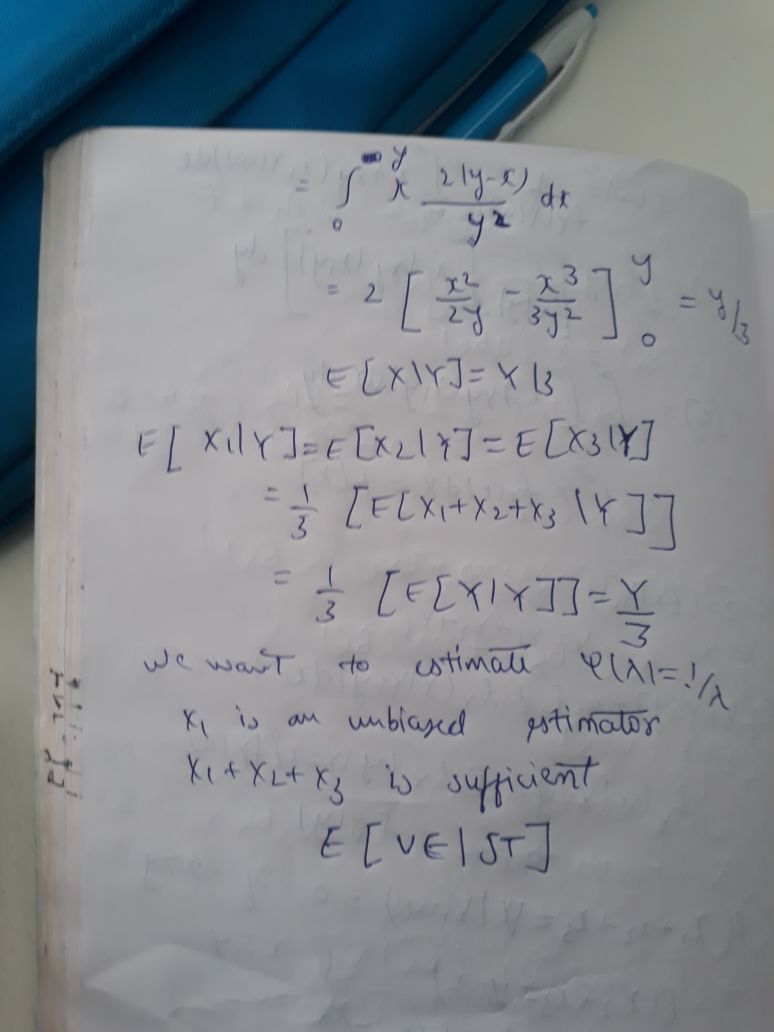 = ∫₀^y x 2(y-x)/y² dx
= 2 [ x²/2y - x³/3y² ]₀^y = y/3
E[X|Y] = Y/3
E[X₁|Y] = E[X₂|Y] = E[X₃|Y]
= 1/3 [E[X₁+X₂+X₃|Y]]
= 1/3 [E[Y|Y]] = Y/3
we want to estimate φ(λ) = 1/λ
X₁ is an unbiased estimator
X₁+X₂+X₃ is sufficient
E[VE|ST]